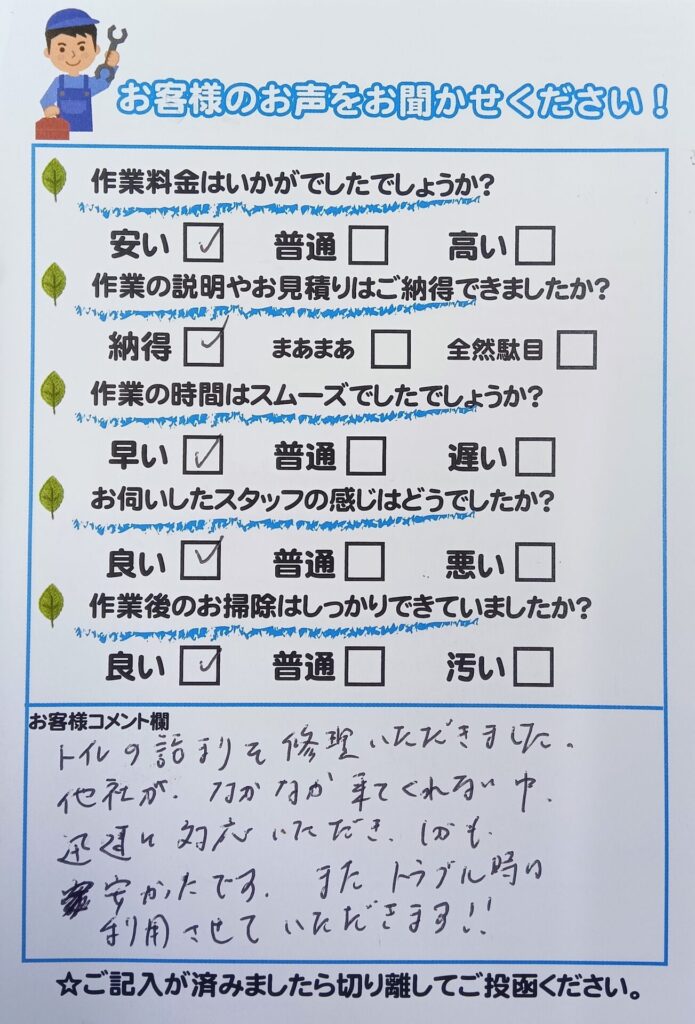 お客様のお声をお聞かせください!
作業料金はいかがでしたでしょうか?
安い ☑ 普通 □ 高い □
作業の説明やお見積りはご納得できましたか?
納得 ☑ まあまあ □ 全然駄目 □
作業の時間はスムーズでしたでしょうか?
早い ☑ 普通 □ 遅い □
お伺いしたスタッフの感じはどうでしたか?
良い ☑ 普通 □ 悪い □
作業後のお掃除はしっかりできていましたか?
良い ☑ 普通 □ 汚い □
お客様コメント欄
トイレの詰まりを修理いただきました。
他社が、なかなか来てくれない中、
迅速に対応いただき、しかも、
安かったです。またトラブル時は
利用させていただきます!!
☆ご記入が済みましたら切り離してご投函ください。